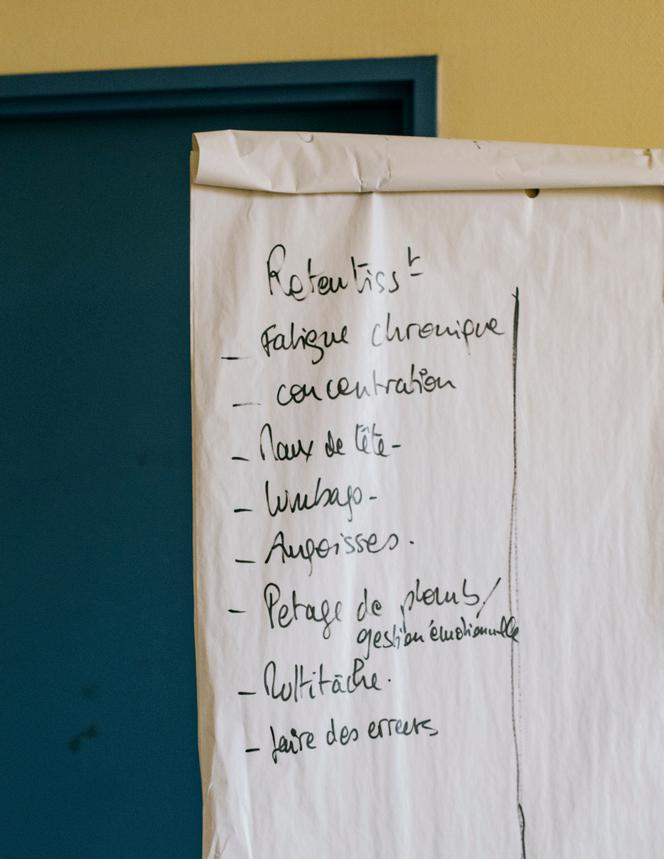 Retentiss^t
_ Fatigue chronique
_ concentration
_ Maux de tête -
_ lumbago -
_ Angoisses.
_ Petage de plomb/
gestion émotionnelle
_ Multitâche.
_ faire des erreurs